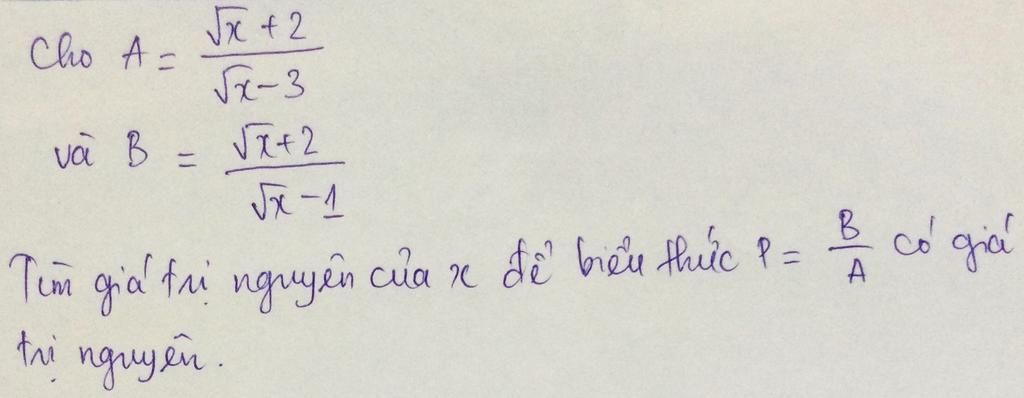 Cho A = \frac{\sqrt{x} + 2}{\sqrt{x} - 3}
và B = \frac{\sqrt{x} + 2}{\sqrt{x} - 1}
Tìm giá trị nguyên của x để biểu thức P = \frac{B}{A} có giá
trị nguyên.